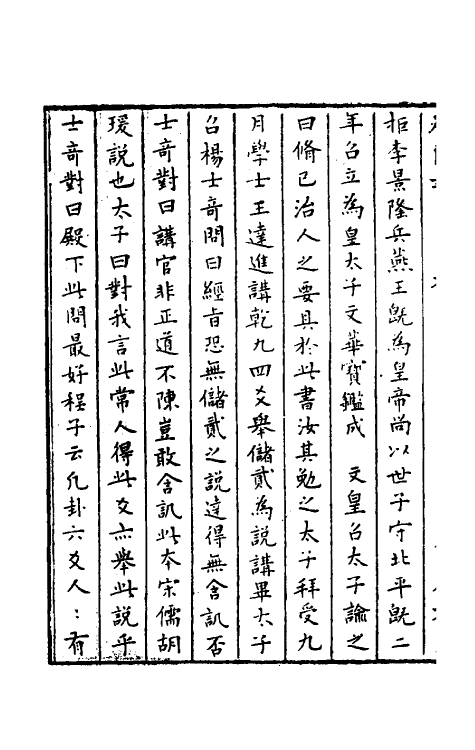 拒李景隆兵燕王旣為皇帝尚以世子守北平旣二
年召立為皇太子文華寶鑑成　文皇召太子諭之
曰脩已治人之要具於此書汝其勉之太子拜受九
月學士王達進講乾九四爻舉儲貳為說講畢太子
召楊士奇問曰經旨恐無儲貳之說達得無含訊否
士奇對曰講官非正道不陳豈敢含訊此夲宋儒胡
瑗說也太子曰對我言此常人得此爻亦舉此說乎
士奇對曰殿下此問最好程子云凢卦六爻人：有